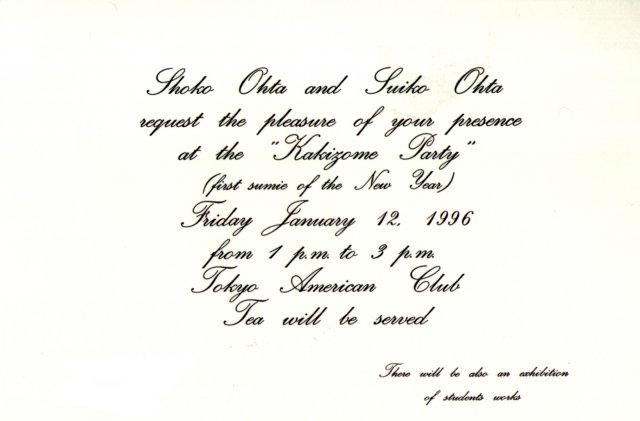 Shoko Ohta and Suiko Ohta
request the pleasure of your presence
at the "Kakizome Party"
(first sumie of the New Year)
Friday January 12, 1996
from 1 p.m. to 3 p.m.
Tokyo American Club
Tea will be served
There will be also an exhibition
of students works